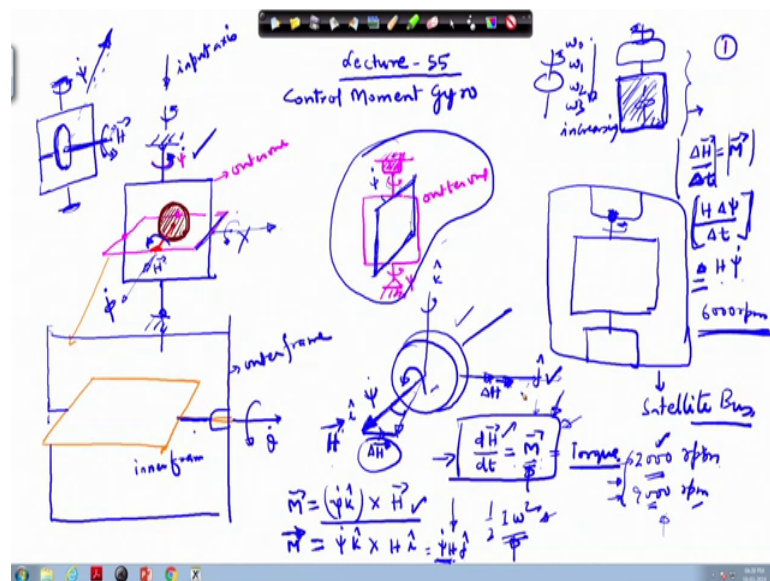 Lecture - 55
Control Moment Gyro
input axis
ψ̇
H⃗
ψ̇
outer one
X
H⃗
φ̇
outer frame
θ̇
inner fram
ψ̇
outter one
ψ̇
k̂
ĵ
ΔH
î ψ̇
H⃗
ΔH⃗
dH⃗/dt = M⃗ = Torque
M⃗ = (ψ̇k̂) × H⃗
M⃗ = ψ̇ k̂ × H î = ψ̇H ĵ
1/2 Iω²
ω0
ω1
ω2
ω3
increasing
1
ΔH⃗/Δt = |M⃗|
[H Δψ/Δt]
= H ψ̇
6000 rpm
Satellite Bus
62000 rpm
9000 rpm